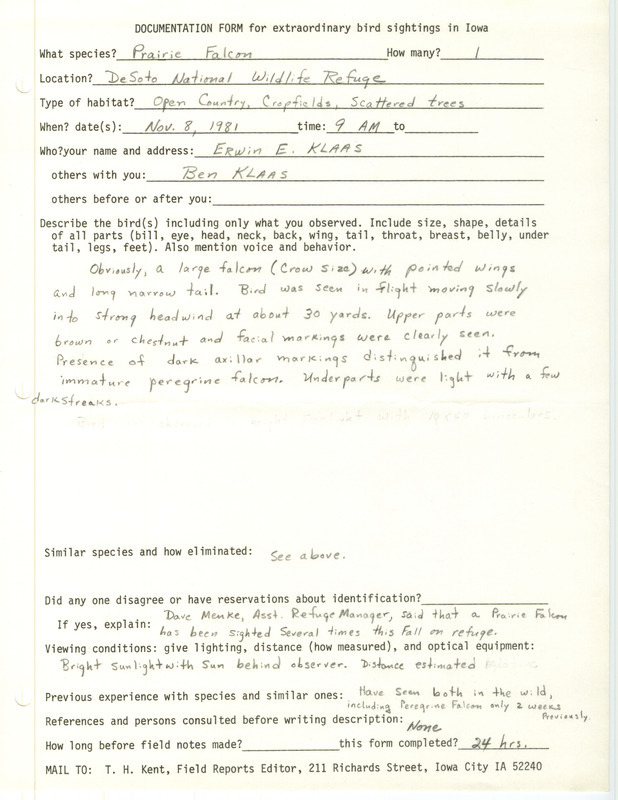 DOCUMENTATION FORM for extraordinary bird sightings in Iowa
What species? Prairie Falcon How many? 1
Location? DeSoto National Wildlife Refuge
Type of habitat? Open Country, Cropfields, Scattered trees
When? date(s): Nov. 8, 1981 time: 9 AM to
Who?your name and address: Erwin E. KLAAS
others with you: Ben KLAAS
others before or after you:
Describe the bird(s) including only what you observed. Include size, shape, details
of all parts (bill, eye, head, neck, back, wing, tail, throat, breast, belly, under
tail, legs, feet). Also mention voice and behavior.
Obviously, a large falcon (Crow size) with pointed wings
and long narrow tail. Bird was seen in flight moving slowly
into strong headwind at about 30 yards. Upper parts were
brown or chestnut and facial markings were clearly seen.
Presence of dark axillar markings distinguished it from
immature peregrine falcon. Underparts were light with a few
dark streaks.
Similar species and how eliminated: See above.
Did any one disagree or have reservations about identification?
If yes, explain: Dave Menke, Asst. Refuge Manager, said that a Prairie Falcon
has been sighted several times this Fall on refuge.
Viewing conditions: give lighting, distance (how measured), and optical equipment:
Bright sunlight with sun behind observer. Distance estimated
Previous experience with species and similar ones: Have seen both in the wild,
including Peregrine Falcon only 2 weeks
previously.
References and persons consulted before writing description: None
How long before field notes made? this form completed? 24 hrs.
MAIL TO: T. H. Kent, Field Reports Editor, 211 Richards Street, Iowa City IA 52240